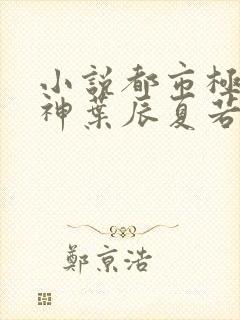 小説都市極
神葉辰夏若
鄭京浩